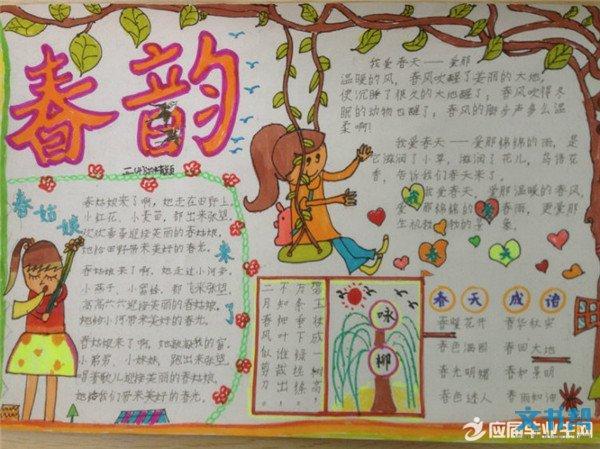 春韵
春姑娘
来了
春姑娘来了啊,她走在田野上。
小红花、小麦苗,都出来张望。
欢欢喜喜迎接美丽的春姑娘,
她给田野带来美好的春光。
春姑娘来了啊,她走过小河旁。
小燕子、小蜜蜂,都飞来张望。
迎接美丽的春姑娘。
她给小河带来美好的春光。
春姑娘来了啊,她
小弟弟、小妹妹,跑出来张望。
歌儿迎接美丽的春姑娘,
她给我们带来美好的春光。
我爱春天——爱那
温暖的风,春风吹醒了美丽的大地,
使沉睡了很久的大地醒了;春风吹得冬
眠的动物也醒了;春风的脚步声多么温
柔啊!
我爱春天——爱那绵绵的雨,是
它滋润了小草,滋润了花儿,鸟语花
香,告诉我们春天来了。
我爱春天,爱那温暖的春风,
爱那绵绵的春雨,更爱那
生机的景象。
咏柳
碧玉妆成一树高
万条垂下绿丝绦
不知细叶谁裁出
二月春风似剪刀
春天成语
春暖花开 春华秋实
春色满园 春回大地
春光明媚 春和景明
春色迷人 春雨如油
应届毕业生网
文书帮